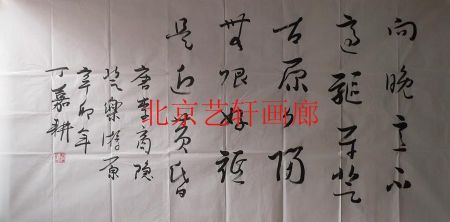 向晚意不
適驅車登
古原夕陽
無限好祗
是近黄昏
唐李商隐
登樂游原
辛卯年
丁嘉耕
北京艺轩画廊